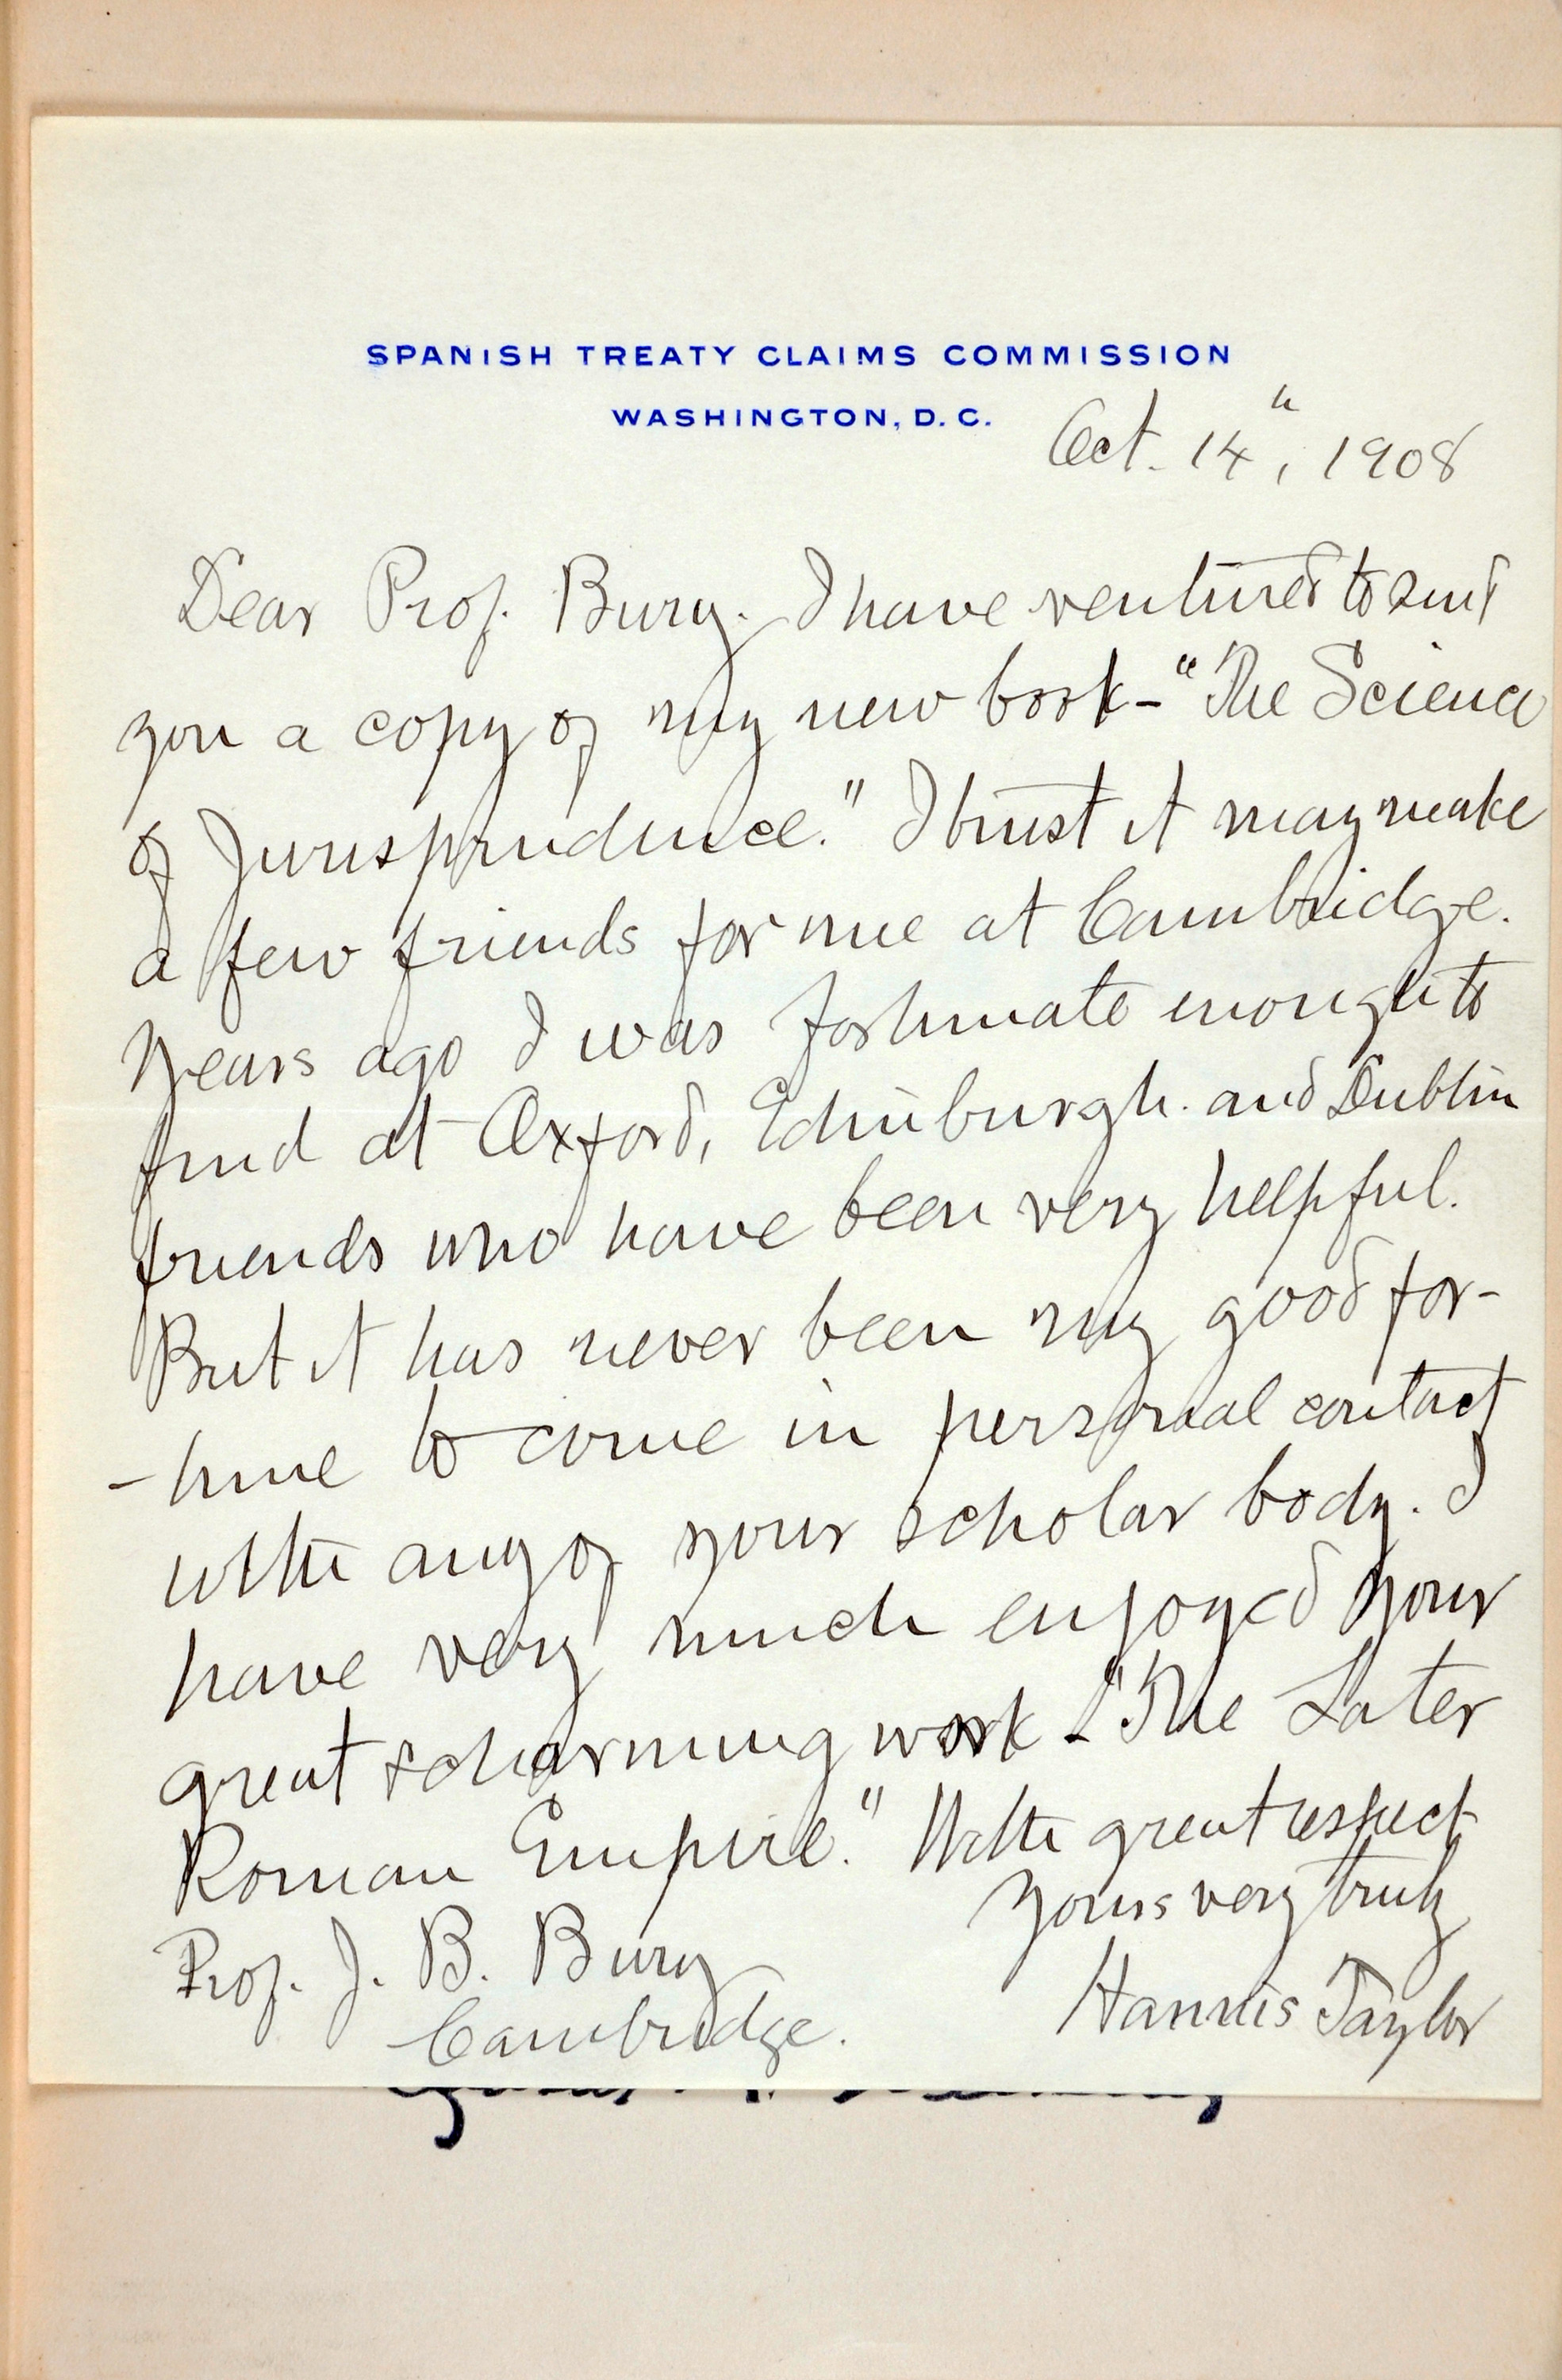 SPANISH TREATY CLAIMS COMMISSION
WASHINGTON, D.C.
Oct. 14", 1908
Dear Prof. Bury. I have ventured to send
you a copy of my new book - "The Science
of Jurisprudence." I trust it may make
a few friends for me at Cambridge.
Years ago I was fortunate enough to
find at Oxford, Edinburgh. and Dublin
friends who have been very helpful.
But it has never been my good for-
-tune to come in personal contact
with any of your scholar body. I
have very much enjoyed your
great & charming work - "The Later
Roman Empire." With great respect
Yours very truly
Prof. J. B. Bury
Hannis Taylor
Cambridge.